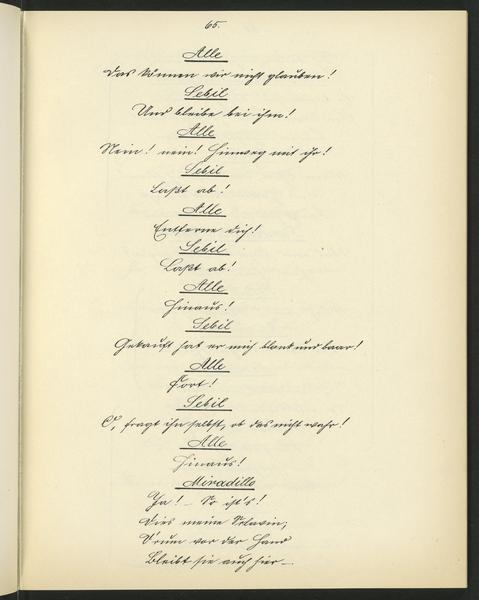 65.
Alle
Das können wir nicht glauben!
Sebil
Und bleibe bei ihm!
Alle
Nein! nein! Hinweg mit ihr!
Sebil
Laßt ab!
Alle
Entferne dich!
Sebil
Laßt ab!
Alle
Hinaus!
Sebil
Gekauft hat er mich blank und baar!
Alle
Fort!
Sebil
O, fragt ihn selbst, ob das nicht wahr!
Alle
Hinaus!
Miradillo
Ja! – So ist's!
Dies meine Sclavin,
Drum vor der Hand
Bleibt sie auch hier –